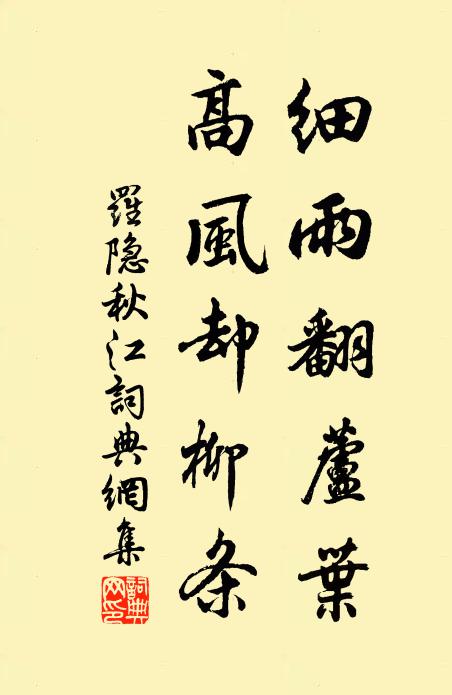 細雨翻蘆葉
高風却柳条
羅隐秋江詞典網集
詞典网印